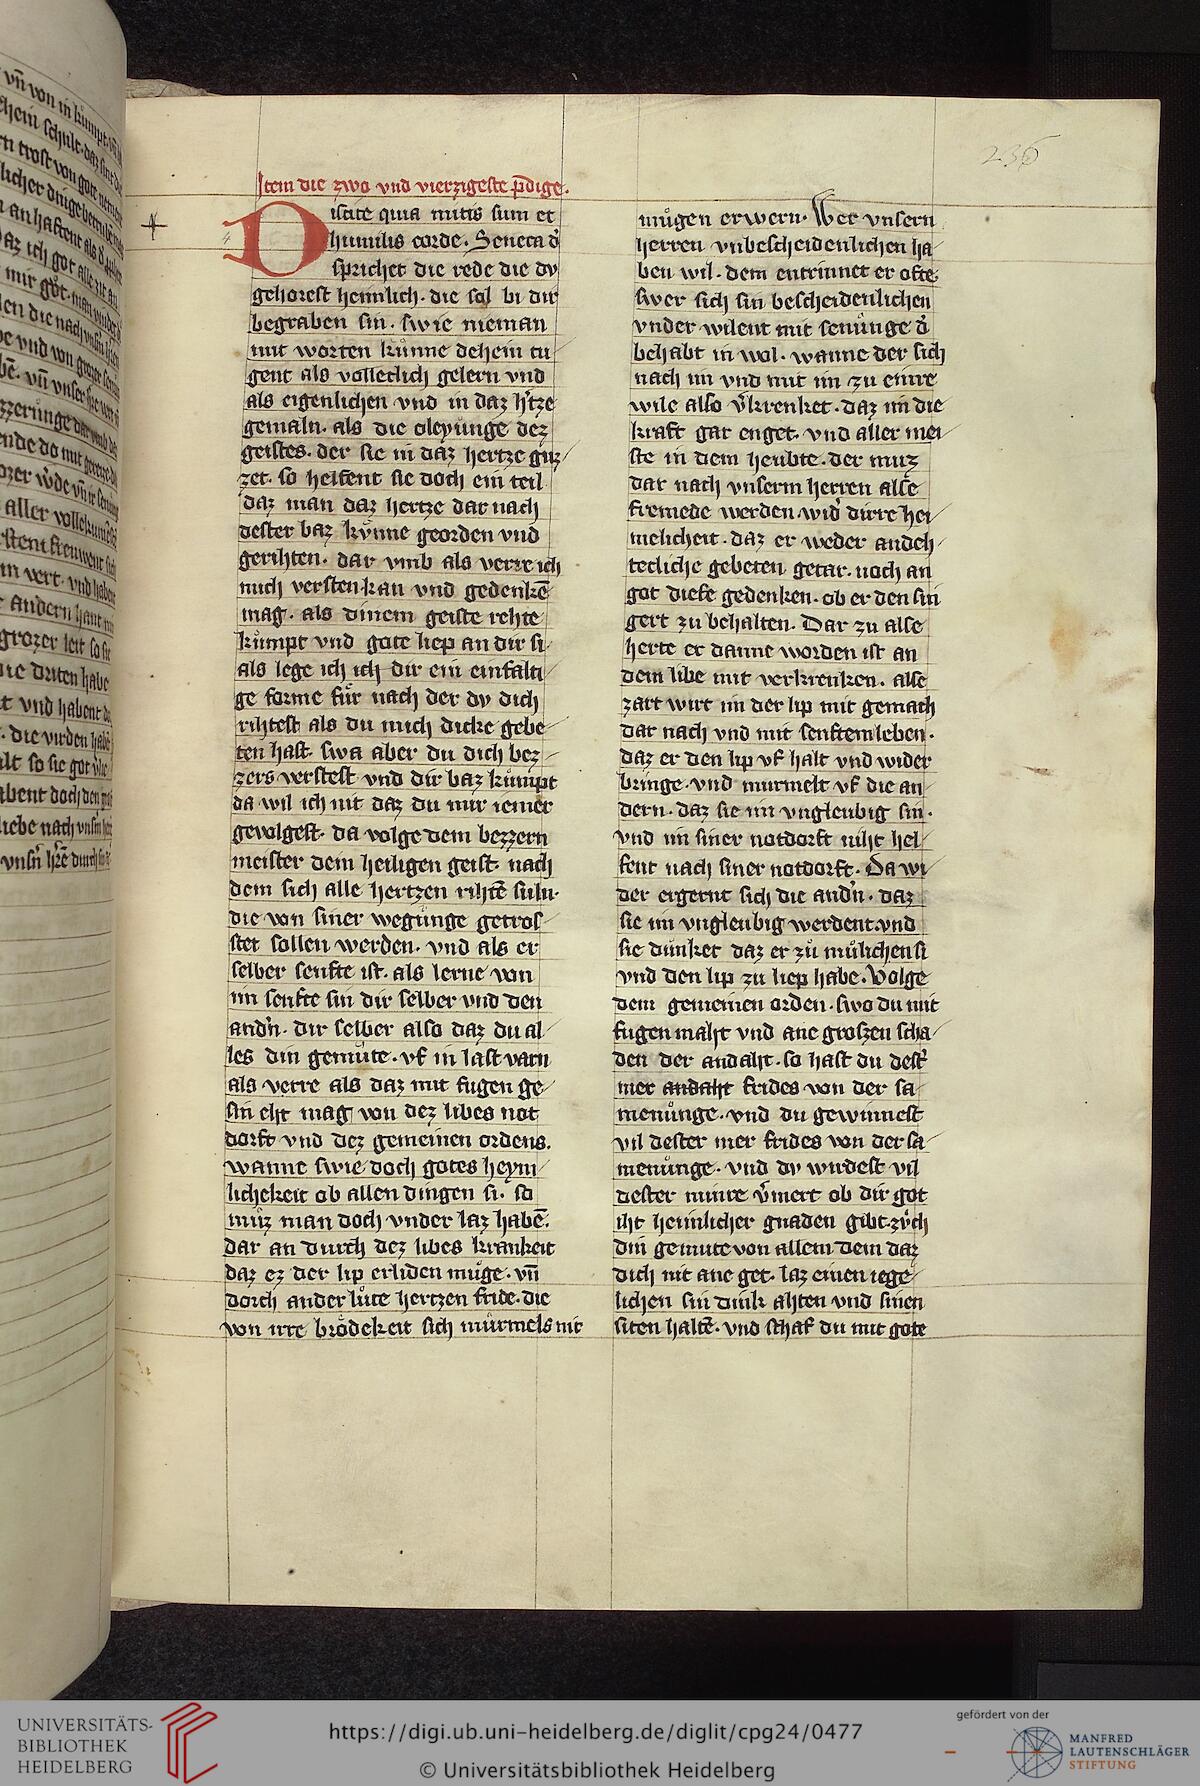 236
Item die zwo vnd vierzigeste p̄dige.
Discite quia mitis sum et
humilis corde. Seneca d̓
sprichet die rede die dv
gehorest heimlich. die sol bi dir
begraben sin. swie nieman
mit worten kuͤnne dehein tu/
gent als volleclich gelern vnd
als eigenlichen vnd in daz h̓tze
gemaln. als die oleyunge dez
geistes. der sie in daz hertze guz/
zet. so helfent sie doch ein teil
daz man daz hertze dar nach
dester baz kynne georden vnd
gerihten. dar vmb als verre ich
mich versten kan vnd gedenkē
mag. als dinem geiste rehte
kuͤmpt vnd gote liep an dir si/
als lege ich ich dir ein einfalti/
ge forme fuͤr nach der dv dich
rihtest als du mich dicke gebe/
ten hast. swa aber du dich bez/
zers verstest vnd dir baz kuͤmpt
da wil ich nit daz du mir iemer
gevolgest. da volge dem bezzern
meister dem heiligen geist. nach
dem sich alle hertzen rihtē suln.
die von siner wegunge getros/
stet sollen werden. vnd als er
selber senfte ist. als lerne von
im senfte sin dir selber vnd den
and̓n. dir selber also daz du al/
les din gemuͤte. vf in last varn
als verre als daz mit fugen ge/
sin eht mag von dez libes not
dorft vnd dez gemeinen ordens.
wanne swie doch gotes heym/
lichekeit ob allen dingen si. so
muͤz man doch vnder laz habē.
dar an durch dez libes krankeit
daz ez der lip erliden muͤge. vn̄
dorch ander luͤte hertzen fride. die
von irre broͤdekeit sich muͤrmels nit
muͤgen erwern. Wer vnsern
herren vnbescheidenlichen ha/
ben wil. dem entrinnet er ofte.
swer sich sin bescheidenlichen
vnder wilent mit senuͤnge d̓
behabt in wol. wanne der sich
nach im vnd mit im zu einre
wile also v̓krenket. daz im die
kraft gar enget. vnd aller mei/
ste in dem heubte. der muz
dar nach vnserm herren alse
fremede werden wid̓ dirre hei/
melicheit. daz er weder andeh/
tecliche gebeten getar. noch an
got diefe gedenken. ob er den sin
gert zu behalten. Dar zu alse
herte er danne worden ist an
dem libe mit verkrenken. alse
zart wirt im der lip mit gemach
dar nach vnd mit senftem leben.
daz er den lip vf halt vnd wider
bringe. vnd murmelt vf die an
dern. daz sie im vngleubig sin.
vnd im siner notdorft niht hel/
fent nach siner notdorft. Da wi/
der ergernt sich die and̓n. daz
sie im vngleubig werdent. vnd
sie dunket daz er zuͤ muͤlichen si
vnd den lip zu liep habe. Volge
dem gemeinen orden. swo du mit
fugen maht vnd ane groszen scha/
den der andaht. so hast du dest̓
mer andaht frides von der sa/
menuͤnge. vnd du gewinnest
vil dester mer frides von der sa/
menuͤnge. vnd dv wirdest vil
dester minre v̓mert ob dir got
iht heimlicher gnaden gibt. zuͤch
din gemute von allem dem daz
dich nit ane get. laz einen iege/
lichen sin dink ahten vnd sinen
siten haltē. vnd schaf du mit gote
UNIVERSITÄTS-
BIBLIOTHEK
HEIDELBERG
https://digi.ub.uni-heidelberg.de/diglit/cpg24/0477
© Universitätsbibliothek Heidelberg
gefördert von der
MANFRED
LAUTENSCHLÄGER
STIFTUNG